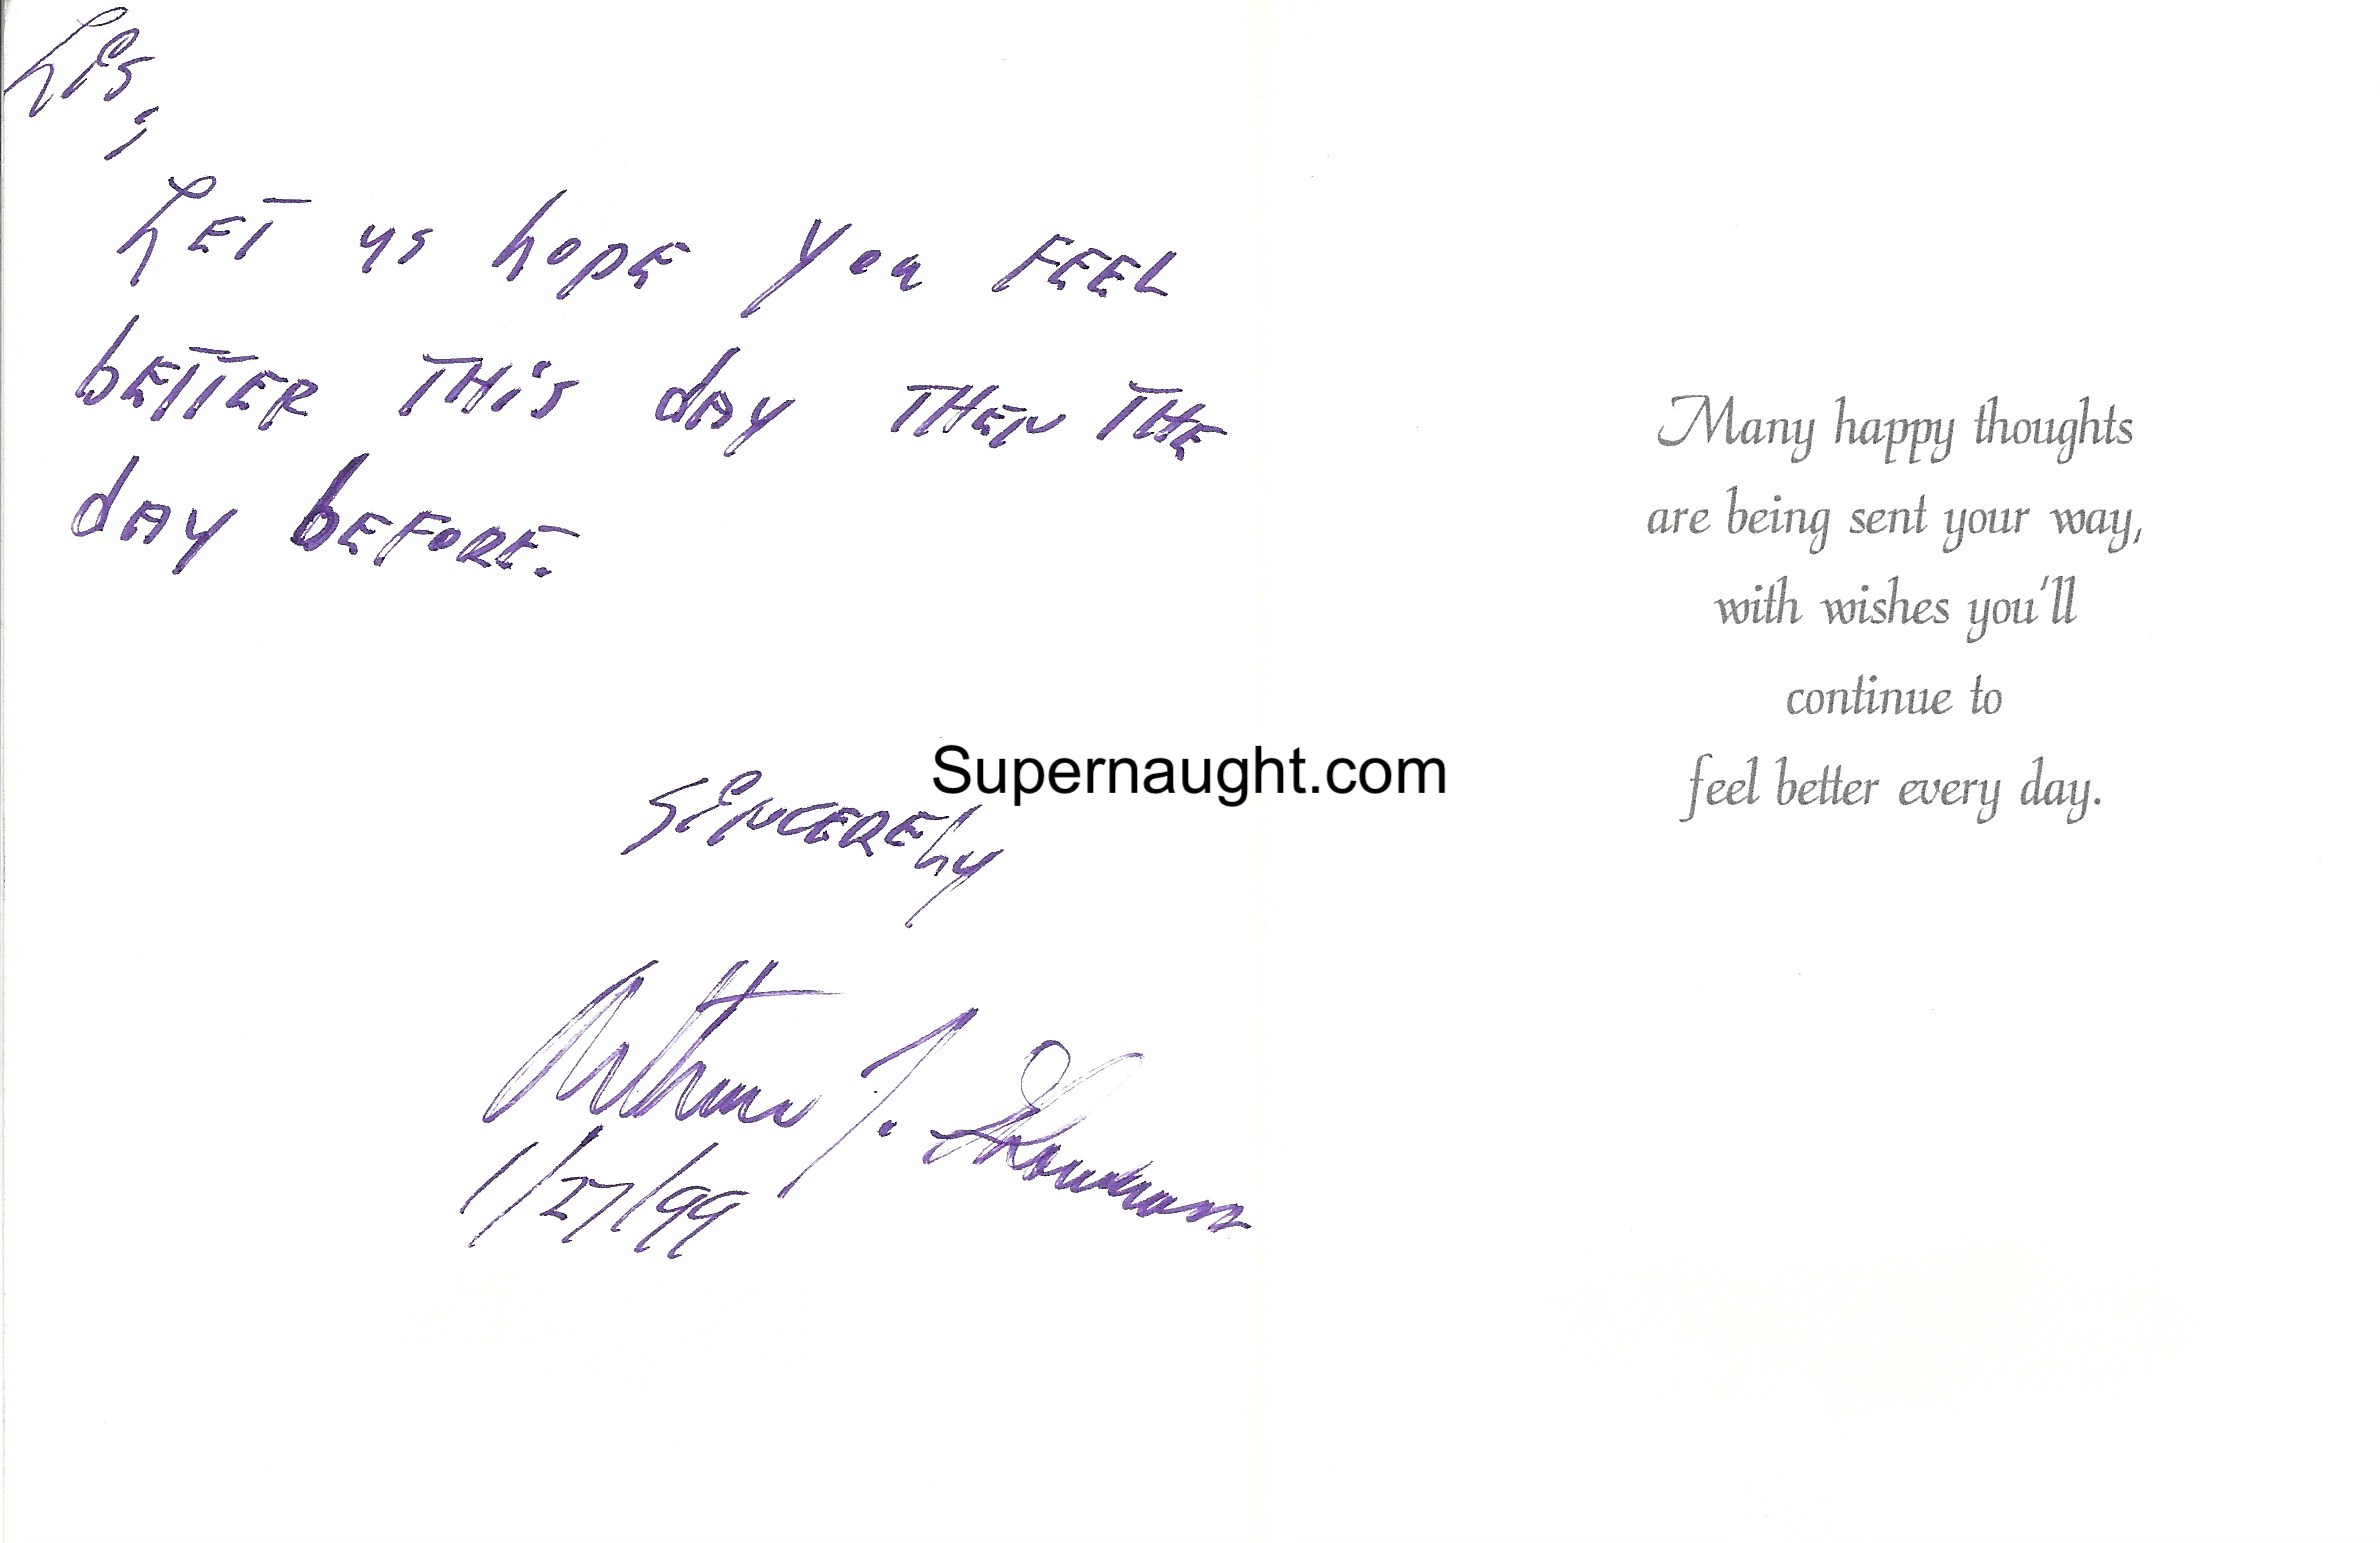 Lis,
Let us hope you FEEL
bETTER THiS dAY THEN THE
dAY bEFORE.
SiNCERELY
Arthur J. Shawcross
1/27/99
Supernaught.com
Many happy thoughts
are being sent your way,
with wishes you'll
continue to
feel better every day.